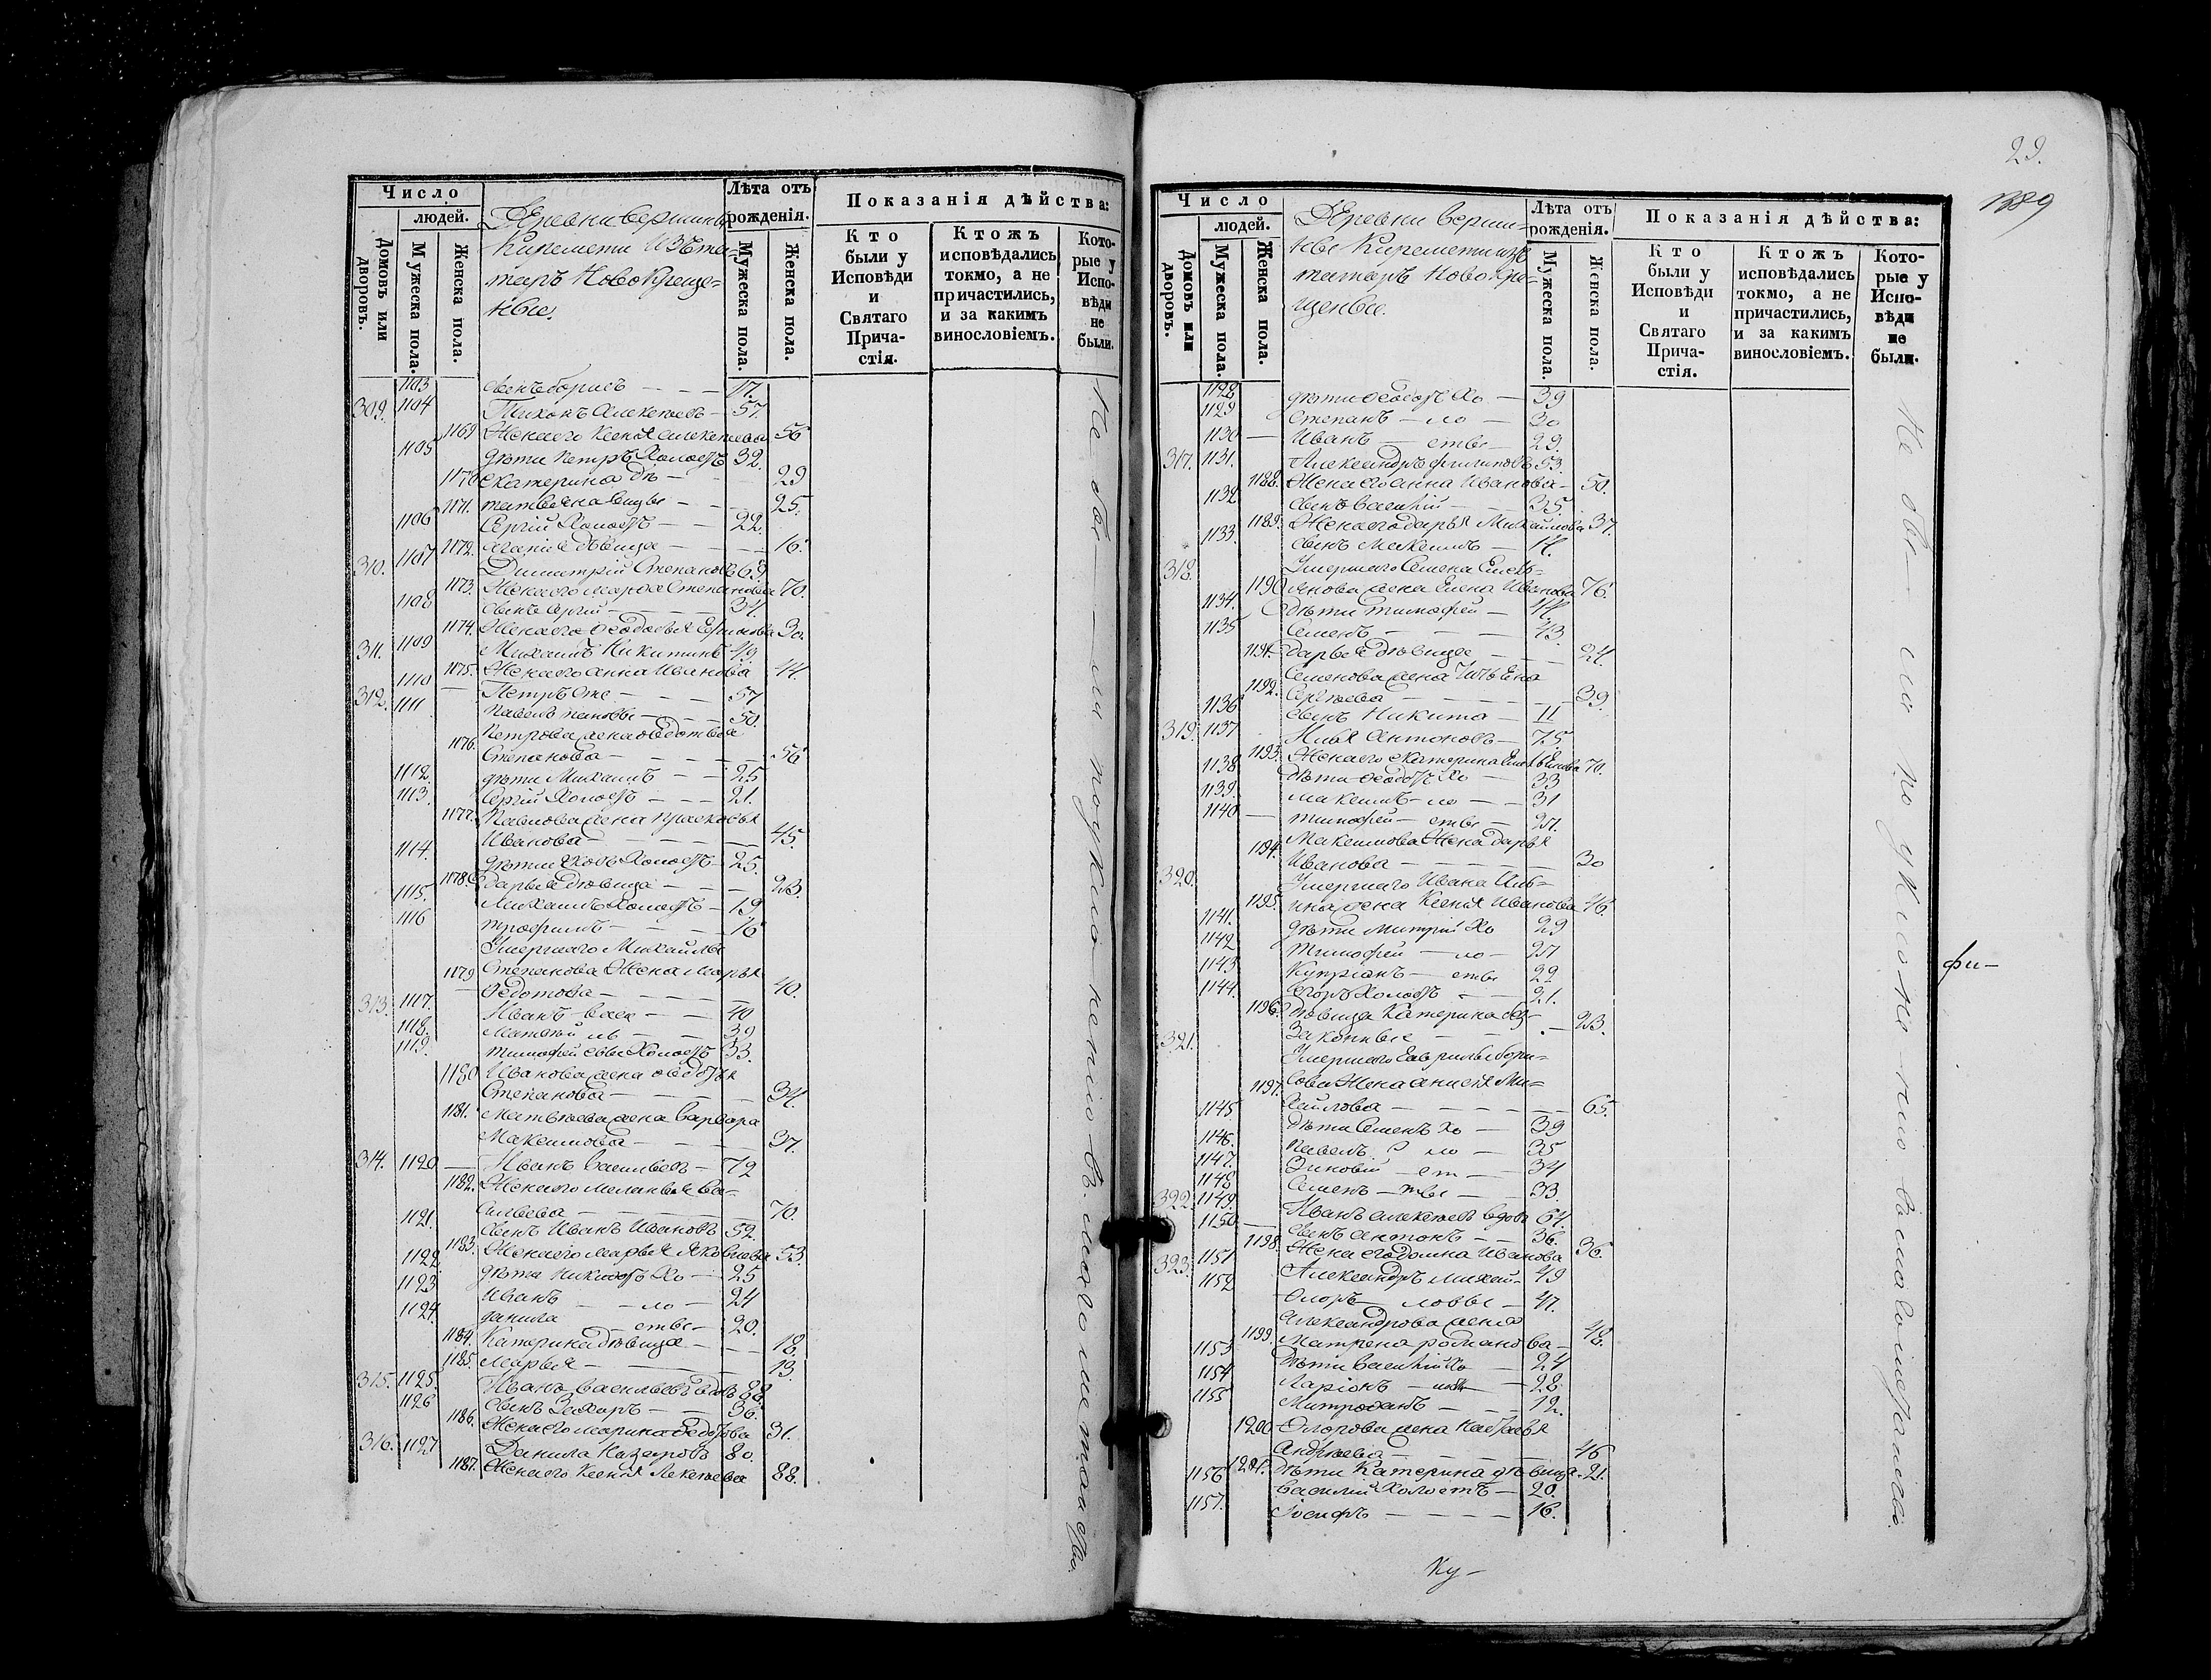 Число
людей.
Домовъ или дворовъ.
Мужеска пола.
Женска пола.
Деревни вершины
Киремети изъ та-
таръ Новокреще-
ные.
Лѣта отъ
рожденія.
Мужеска пола.
Женска пола.
Показанія дѣйства:
Кто
были у
Исповѣди
и
Святаго
Прича-
стія.
Ктожъ
исповѣдались
токмо, а не
причастились,
и за какимъ
винословіемъ.
Кото-
рые у
Испо-
вѣди
не
были.
1103 сынъ борисъ — 17.
309. 1104 Тихонъ Алексѣевъ — 57.
1169 Жена его Ксенія алексѣева 56
1105 дѣти Петръ Холостъ 32.
1170 екатерина дѣ — 29
1171. татьяна вицы — 25.
1106 Сергій Холостъ — 22.
1172. аганія дѣвица — 16.
310. 1107 Димитрій Степановъ 69.
1173. Жена его марѳа Степанова 70.
1108 сынъ сергій — 34.
1174. Жена его Ѳеодосья Ермилова 30.
311. 1109 Михаилъ Никитинъ 49.
1175. Жена его анна Иванова 44.
312. 1110 Петръ Сте — 57
1111 павелъ пановы — 50.
Петрова жена ѳедотья
1176. Степанова — 56
1112. дѣти Михаилъ — 25
1113. Сергій Холостъ — 21.
1177. Павлова жена прасковья
Иванова — 45.
1114. дѣти яковъ Холостъ — 25.
1178. дарья дѣвица — 23.
1115. Михаилъ Холостъ — 19
1116 трофимъ — 16
Умершаго Михайлы
1179 Степанова Жена марья
Ѳедотова — 40.
313. 1117. Иванъ — васи — 40
1118. матвѣй ль — 39
1119. тимофей евы Холостъ 33.
1180 Иванова жена ѳедосья
Степанова — 34.
1181. матвѣева жена варвара
Максимова — 37.
314. 1120 — Иванъ васильевъ — 72
1182. Жена его меланья ва-
сильева — 70.
1121. сынъ Иванъ Ивановъ 52.
1183. Жена его марья яковлева 53.
1122. дѣти Никифоръ Хо — 25
1123. Иванъ — ло — 24
1124. данила — стые 20.
1184. Катерина дѣвица — 18.
1185. марья — 13.
315. 1125 Иванъ васильевъ вдовъ 88.
1126 сынъ Захаръ — 36.
1186. Жена его марина ѳедотова 31.
316. 1127 Данила Назаровъ 80.
1187. Жена его Ксенія алексѣева 88.
Не бы — ли по укло ненію въ магометанство.
29.
1389
Число
людей.
Домовъ или дворовъ.
Мужеска пола.
Женска пола.
Деревни верши-
ны Киремети изъ
татаръ Новокре-
щеные.
Лѣта отъ
рожденія.
Мужеска пола.
Женска пола.
Показанія дѣйства:
Кто
были у
Исповѣди
и
Святаго
Прича-
стія.
Ктожъ
исповѣдались
токмо, а не
причастились,
и за какимъ
винословіемъ.
Кото-
рые у
Испо-
вѣди
не
были.
1128 дѣти Ѳеодоръ Хо — 39
1129 Степанъ — ло — 30
1130 — Иванъ — стые — 29.
317. 1131. Александръ филиповъ 53.
1188. Жена его анна Иванова — 50.
1132 сынъ василій — 35.
1189. Жена его дарья Михайлова 37.
1133. сынъ Максимъ — 14.
318. Умершаго Семена Емель-
1190 янова жена Елена Иванова 76.
1134. дѣти тимофей — 44.
1135 Семенъ — 43
1191. дарья дѣвица — 24.
Семенова жена татьяна
1192. Сергѣева — 39.
1136 сынъ Никита — 11
319. 1137 Илья Антоновъ — 75.
1193. Жена его екатерина Емельянова 70.
1138 дѣти Ѳеодоръ Хо — 33
1139. максимъ — ло — 31
1140 — тимофей — стые — 27.
1194. Максимова Жена дарья
Иванова — 30
320. Умершаго Ивана Иль-
1195. ина жена Ксенія Иванова 46.
1141. дѣти митрій Хо 29
1142. Тимофей — ло — 27
1143. Купріанъ — стые 22
1144. Егоръ Холостъ — 21.
1196. дѣвица Катерина без-
законные — 23.
321. Умершаго Гаврилы бори-
1197. сова Жена анисья Ми-
хайлова — 65.
1145. дѣти Семенъ Хо — 39
1146. Павелъ ло — 35
1147. Зиновій — ст — 34
1148 Семенъ — тые — 33.
322. 1149. Иванъ алексѣевъ вдовъ 64.
1150 — сынъ антонъ — 36.
1198. Жена его домна Иванова 36.
323. 1151 Александръ михай- 49
1152 Флоръ — ловы — 47.
Александрова жена
1199. матрена романова — 48.
1153 дѣти василій Хо — 24
1154 Ларіонъ — 28.
1155 Митрофанъ — 12.
1200 Флорова жена настасья
Андрѣева — 46
1201. дѣти Катерина дѣвица 21.
1156 василій Холостъ — 20.
1157. Іосифъ — 16.
Не бы — ли по уклоне-нію въ магометанство.
фи—
Ку—